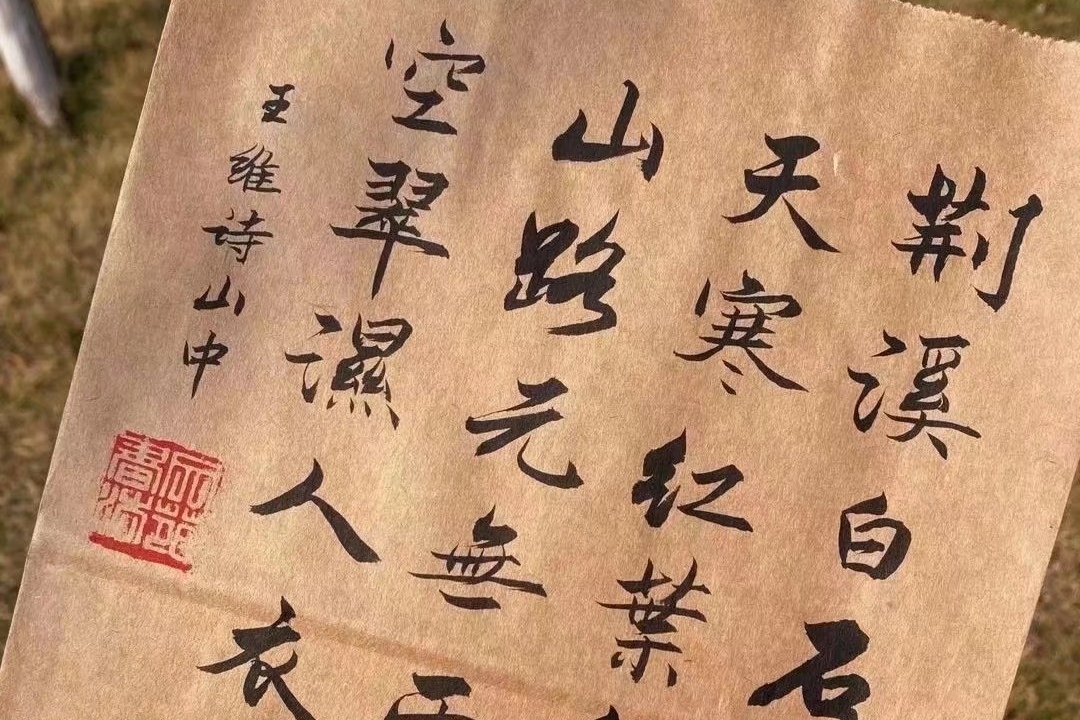 荆溪白石
天寒红葉
山路元無雨
空翠濕人衣
王維诗山中